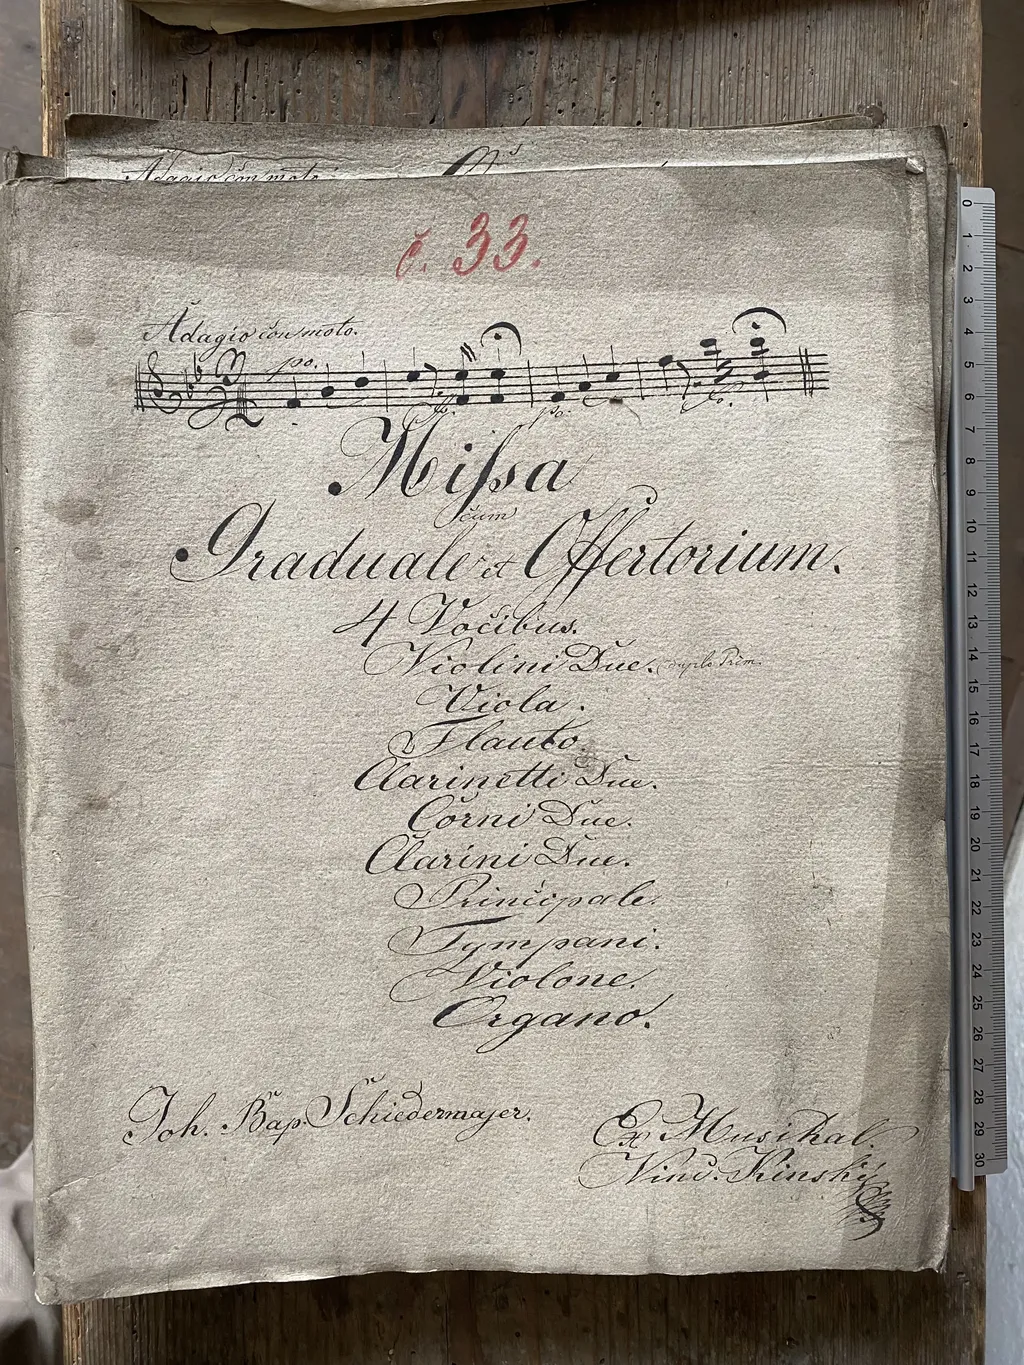 Adagio con moto.
č. 33.
Adagio con moto.
po.
fo. po. fo.
Missa
cum
Graduale et Offertorium.
4 Vocibus.
Violini Due. duplo Prim.
Viola.
Flauto.
Clarinetti Due.
Corni Due.
Clarini Due.
Principale.
Tympani.
Violone.
Organo.
Joh. Bap. Schiedermajer.
Ex Musikal.
Vinc. Kinský
0 1 2 3 4 5 6 7 8 9 10 11 12 13 14 15 16 17 18 19 20 21 22 23 24 25 26 27 28 29 30